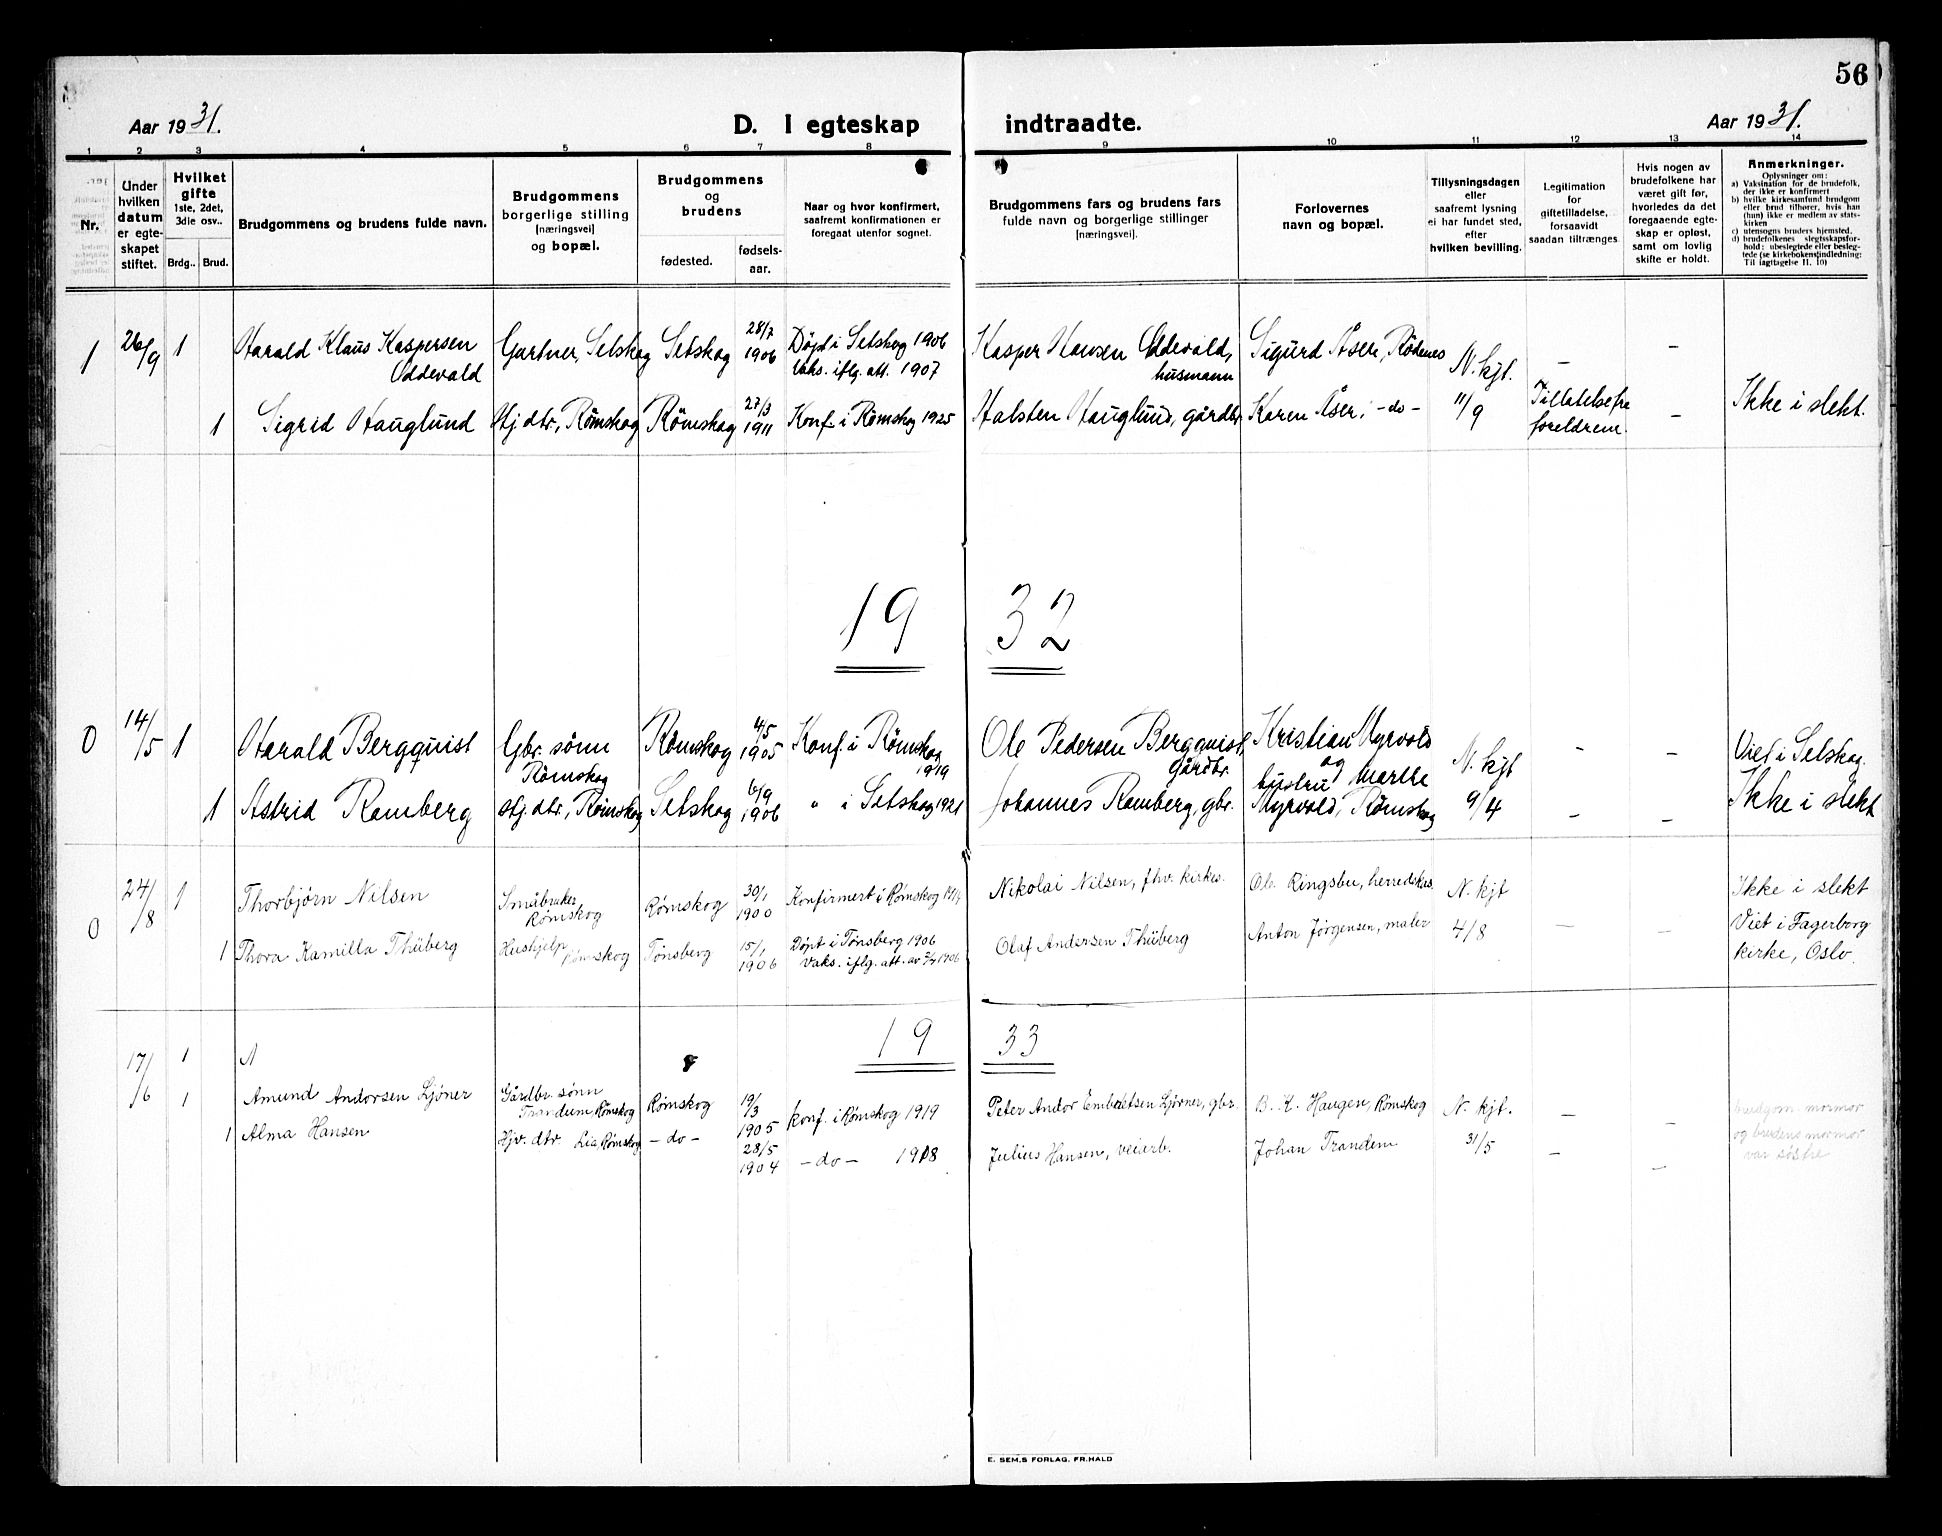 56
Aar 1931.
D. I egteskap indtraadte.
Aar 1931.
1 2 3 4 5 6 7 8 9 10 11 12 13 14
Nr.
Under
hvilken
datum
er egte-
skapet
stiftet.
Hvilket
gifte
1ste, 2det,
3die osv..
Brdg..
Brud.
Brudgommens og brudens fulde navn.
Brudgommens
borgerlige stilling
[næringsvei]
og bopæl.
Brudgommens
og
brudens
fødested.
fødsels-
aar.
Naar og hvor konfirmert,
saafremt konfirmationen er
foregaat utenfor sognet.
Brudgommens fars og brudens fars
fulde navn og borgerlige stillinger
[næringsvei].
Forlovernes
navn og bopæl.
Tillysningsdagen
eller
saafremt lysning
ei har fundet sted,
efter
hvilken bevilling.
Legitimation
for
giftetilladelse,
forsaavidt
saadan tiltrænges
Hvis nogen av
brudefolkene har
været gift før,
hvorledes da det
foregaaende egte-
skap er opløst,
samt om lovlig
skifte er holdt.
Anmerkninger.
Oplysninger om:
a) Vaksination for de brudefolk,
der ikke er konfirmert
b) hvilke kirkesamfund brudgom
eller brud tilhører, hvis han
(hun) ikke er medlem av stats-
kirken
c) utensogns bruders hjemsted.
d) brudefolkenes slegtsskapsfor-
hold: ubeslegtede eller besleg-
tede (se kirkebokens indledning:
Til iagttagelse II. 10)
1 26/9 1 Harald Klaus Kaspersen
Oddevald
Gartner, Setskog Setskog 28/7
1906
Døpt i Setskog 1906
Vaks. iflg. att. 1907
Kasper Hansen Oddevald,
husmann
Sigurd Åser, Rødenes N. kjt. – –
1 Sigrid Hauglund Hj. dtr., Rømskog Rømskog 27/3
1911
Konf. i Rømskog 1925 Halsten Hauglund, gårdbr. Karen Åser, -do- 11/9
Tillatelse fra
foreldrene.
– Ikke i slekt.
19 32
0 14/5 1 Harald Bergquist Gbr. sønn
Rømskog
Rømskog 4/5
1905
Konf. i Rømskog
1919
Ole Pedersen Bergquist,
gårdbr.
Kristian Myrvold
og
hustru Marthe
Myrvold, Rømskog
N. kjt
9/4
– – Viet i Setskog.
Ikke i slekt
1 Astrid Ramberg Hj. dtr., Rømskog Setskog 6/9
1906
" i Setskog 1921 Johannes Ramberg, gbr. – –
0 24/8 1 Thorbjørn Nilsen Småbruker,
Rømskog
Rømskog 30/1
1900
Konfirmert i Rømskog
Nikolai Nilsen, fhv. kirkes. Ole Ringsbu, herredskas. N. kjt
4/8
Ikke i slekt
Viet i Fagerborg
kirke, Oslo.
1 Thora Kamilla Thüberg Hushjelp
Rømskog
Tønsberg 15/1
1906
Døpt i Tønsberg 1906
Vaks. iflg. att. av 1906
Olaf Andersen Thüberg Anton Jørgensen, maler – –
19 33
17/6 1 A
1 Amund Andorsen Ljøner Gårdbr. sønn
Trandum, Rømskog
Rømskog 19/3
1905
konf. i Rømskog 1919
Peter Andor Embretsen Ljøner, gbr. B. K. Haugen, Rømskog N. kjt.
31/5
– –
brudgom. mormor
og brudens mormor
var søstre
1 Alma Hansen Hjv. dtr Lia, Rømskog -do- 28/5
1904
-do- 1918 Julius Hansen, veiarb. Johan Trandem – –
E. SEM,S FORLAG. FR. HALD